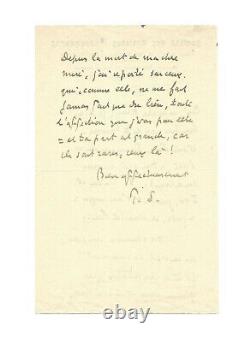 Depuis la mort de ma chère
mère, j'ai reporté sur ceux
qui, comme elle, ne me font
jamais que du bien, toute
l'affection que j'avais pour elle
et ta part est grande, car
ils sont rares, ceux là !
Bien affectueusement